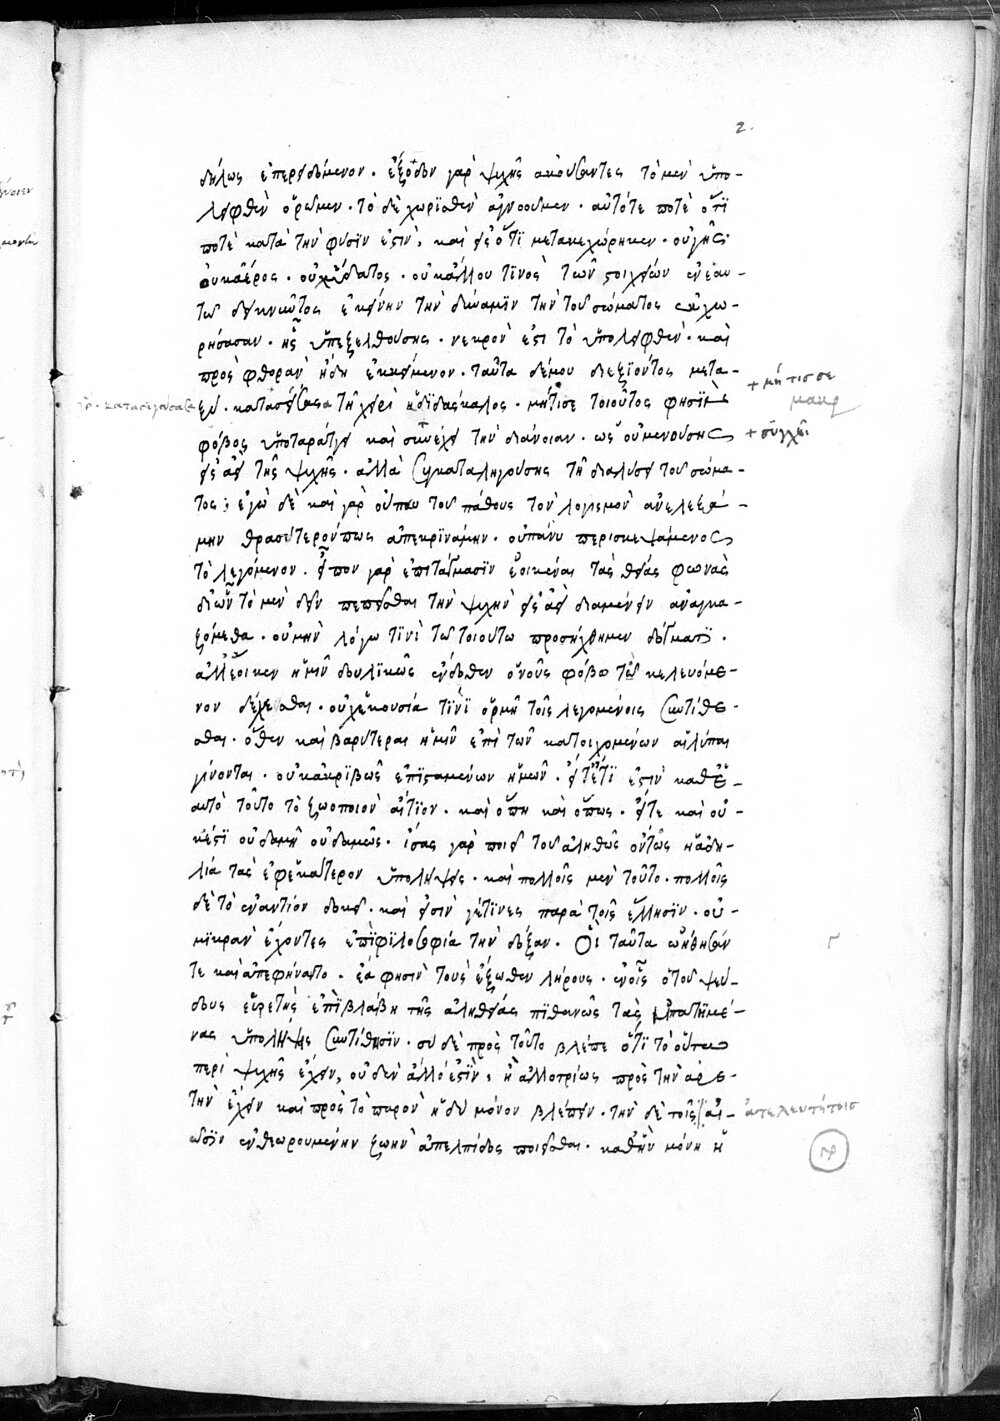 2.
δήλως ἐπερειδόμενον. ἔξοδον γὰρ ψυχῆς ἀκούσαντες τὸ μὲν ὑπο-
λειφθὲν ὁρῶμεν. τὸ δὲ χωρισθὲν ἀγνοοῦμεν. αὐτότε ποτὲ ὅτι
ποτὲ κατὰ τὴν φύσιν ἐστὶν, καὶ εἰς ὅτι μετακεχώρηκεν. οὐ γῆς
οὐκ ἀέρος. οὐχ ὕδατος. οὐκ ἄλλου τινὸς τῶν στοιχείων ἐν ἑαυ-
τῷ δεικνύντος ἐκείνην τὴν δύναμιν τὴν τοῦ σώματος ἐκχω-
ρήσασαν. ἧς ὑπεξελθούσης. νεκρόν ἐστι τὸ ὑπολειφθὲν. καὶ
πρὸς φθορὰν ἤδη ἐκκείμενον. ταῦτα δέ μου διεξιόντος μετα-
ξὺ. κατασείσασα τῇ χειρὶ ἡ διδάσκαλος. μήτι σε τοιοῦτος φησὶ
φόβος ὑποταράττει καὶ συνέχει τὴν διάνοιαν. ὡς οὐ μενούσης
εἰς ἀεὶ τῆς ψυχῆς. ἀλλὰ συγκαταληγούσης τῇ διαλύσει τοῦ σώμα-
τος; ἐγὼ δὲ καὶ γὰρ οὔπω τοῦ πάθους τὸν λογισμὸν ἀνελεξά-
μην θρασύτερόν πως ἀπεκρινάμην. οὐ πάνυ περισκεψάμενος
τὸ λεγόμενον. εἶπον γὰρ ἐπιτάγμασιν ἐοικέναι τὰς θείας φωνὰς
δι' ὧν τὸ μὲν δεῖν πεπεῖσθαι τὴν ψυχὴν εἰς ἀεὶ διαμένειν ἀναγκα-
ζόμεθα. οὐ μὴν λόγῳ τινὶ τῷ τοιούτῳ προσήχθημεν δόγματι.
ἀλλ' ἔοικεν ἡμῖν δουλικῶς ἔνδοθεν ὁ νοῦς φόβῳ τὸ κελευόμε-
νον δέχεσθαι. οὐχ ἑκουσίᾳ τινὶ ὁρμῇ τοῖς λεγομένοις συντίθε-
σθαι. ὅθεν καὶ βαρύτεραι ἡμῖν ἐπὶ τῶν κατοιχομένων αἱ λύπαι
γίνονται. οὐκ ἀκριβῶς ἐπισταμένων ἡμῶν. εἴτε ἔτι ἐστὶν καθ' ἑ-
αυτὸ τοῦτο τὸ ζωοποιὸν αἴτιον. καὶ ὅπη καὶ ὅπως. εἴτε καὶ οὐ-
κέτι οὐδαμῇ οὐδαμῶς. ἴσας γὰρ ποιεῖ τοῦ ἀληθῶς ὄντος ἡ ἀδη-
λία τὰς ἐφ' ἑκάτερον ὑπολήψεις. καὶ πολλοῖς μὲν τοῦτο. πολλοῖς
δὲ τὸ ἐναντίον δοκεῖ. καὶ εἰσίν γέ τινες παρὰ τοῖς ἕλλησιν. οὐ
μικρὰν ἔχοντες ἐπὶ φιλοσοφίᾳ τὴν δόξαν. Οἳ ταῦτα ᾠήθησάν
τε καὶ ἀπεφήναντο. ἔα φησὶν τοὺς ἔξωθεν λήρους. ἐν οἷς ὁ τοῦ ψεύ-
δους εὑρετὴς ἐπὶ βλάβῃ τῆς ἀληθείας πιθανῶς τὰς ἠπατημέ-
νας ὑπολήψεις συντίθησιν. σὺ δὲ πρὸς τοῦτο βλέπε ὅτι τὸ οὕτω
περὶ ψυχῆς ἔχειν, οὐδὲν ἄλλό ἐστιν, ἢ ἀλλοτρίως πρὸς τὴν ἀρε-
τὴν ἔχειν καὶ πρὸς τὸ παρὸν ἡδὺ μόνον βλέπειν. τὴν δὲ τοῖς αἰ-
ῶσιν ἐνθεωρουμένην ζωὴν ἀπελπίδος ποιεῖσθαι. καθ' ἣν μόνη ἡ
+ μή τις σε
+ συγχεῖ
γρ. κατασιγάσασα
ἀτελευτήτοις